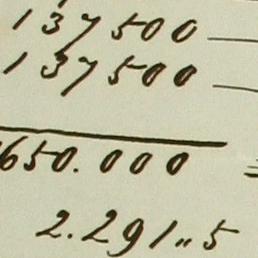 137500
137500
650.000 =
2.291„5